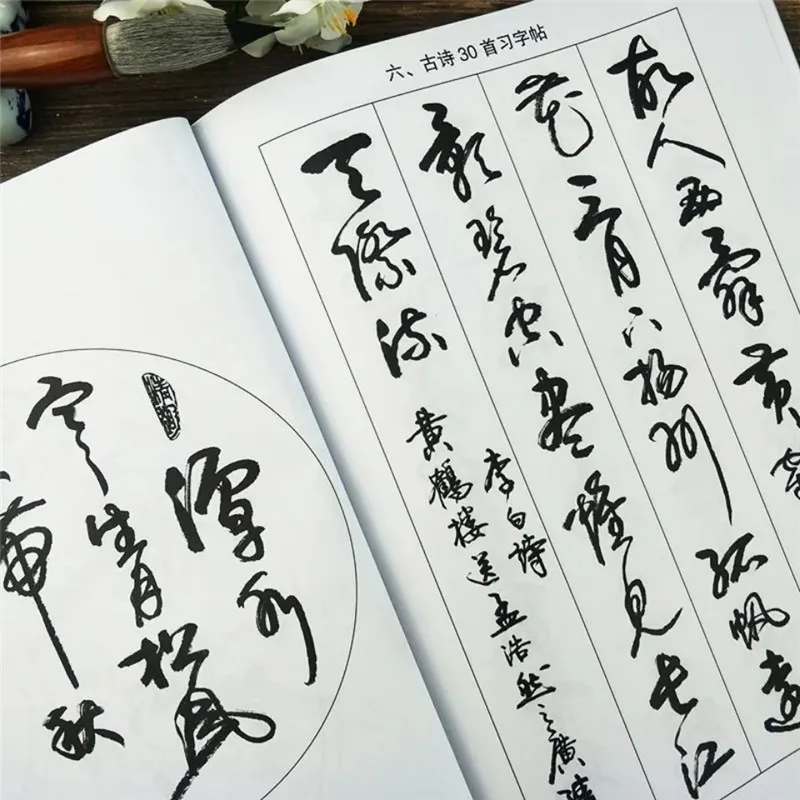 六、古诗30首习字帖
故人西辞黄
花三月下扬州孤帆远
影碧空尽惟见长江
天际流
李白诗
黄鶴楼送孟浩然之廣陵
潭水
寒生月松風
带秋